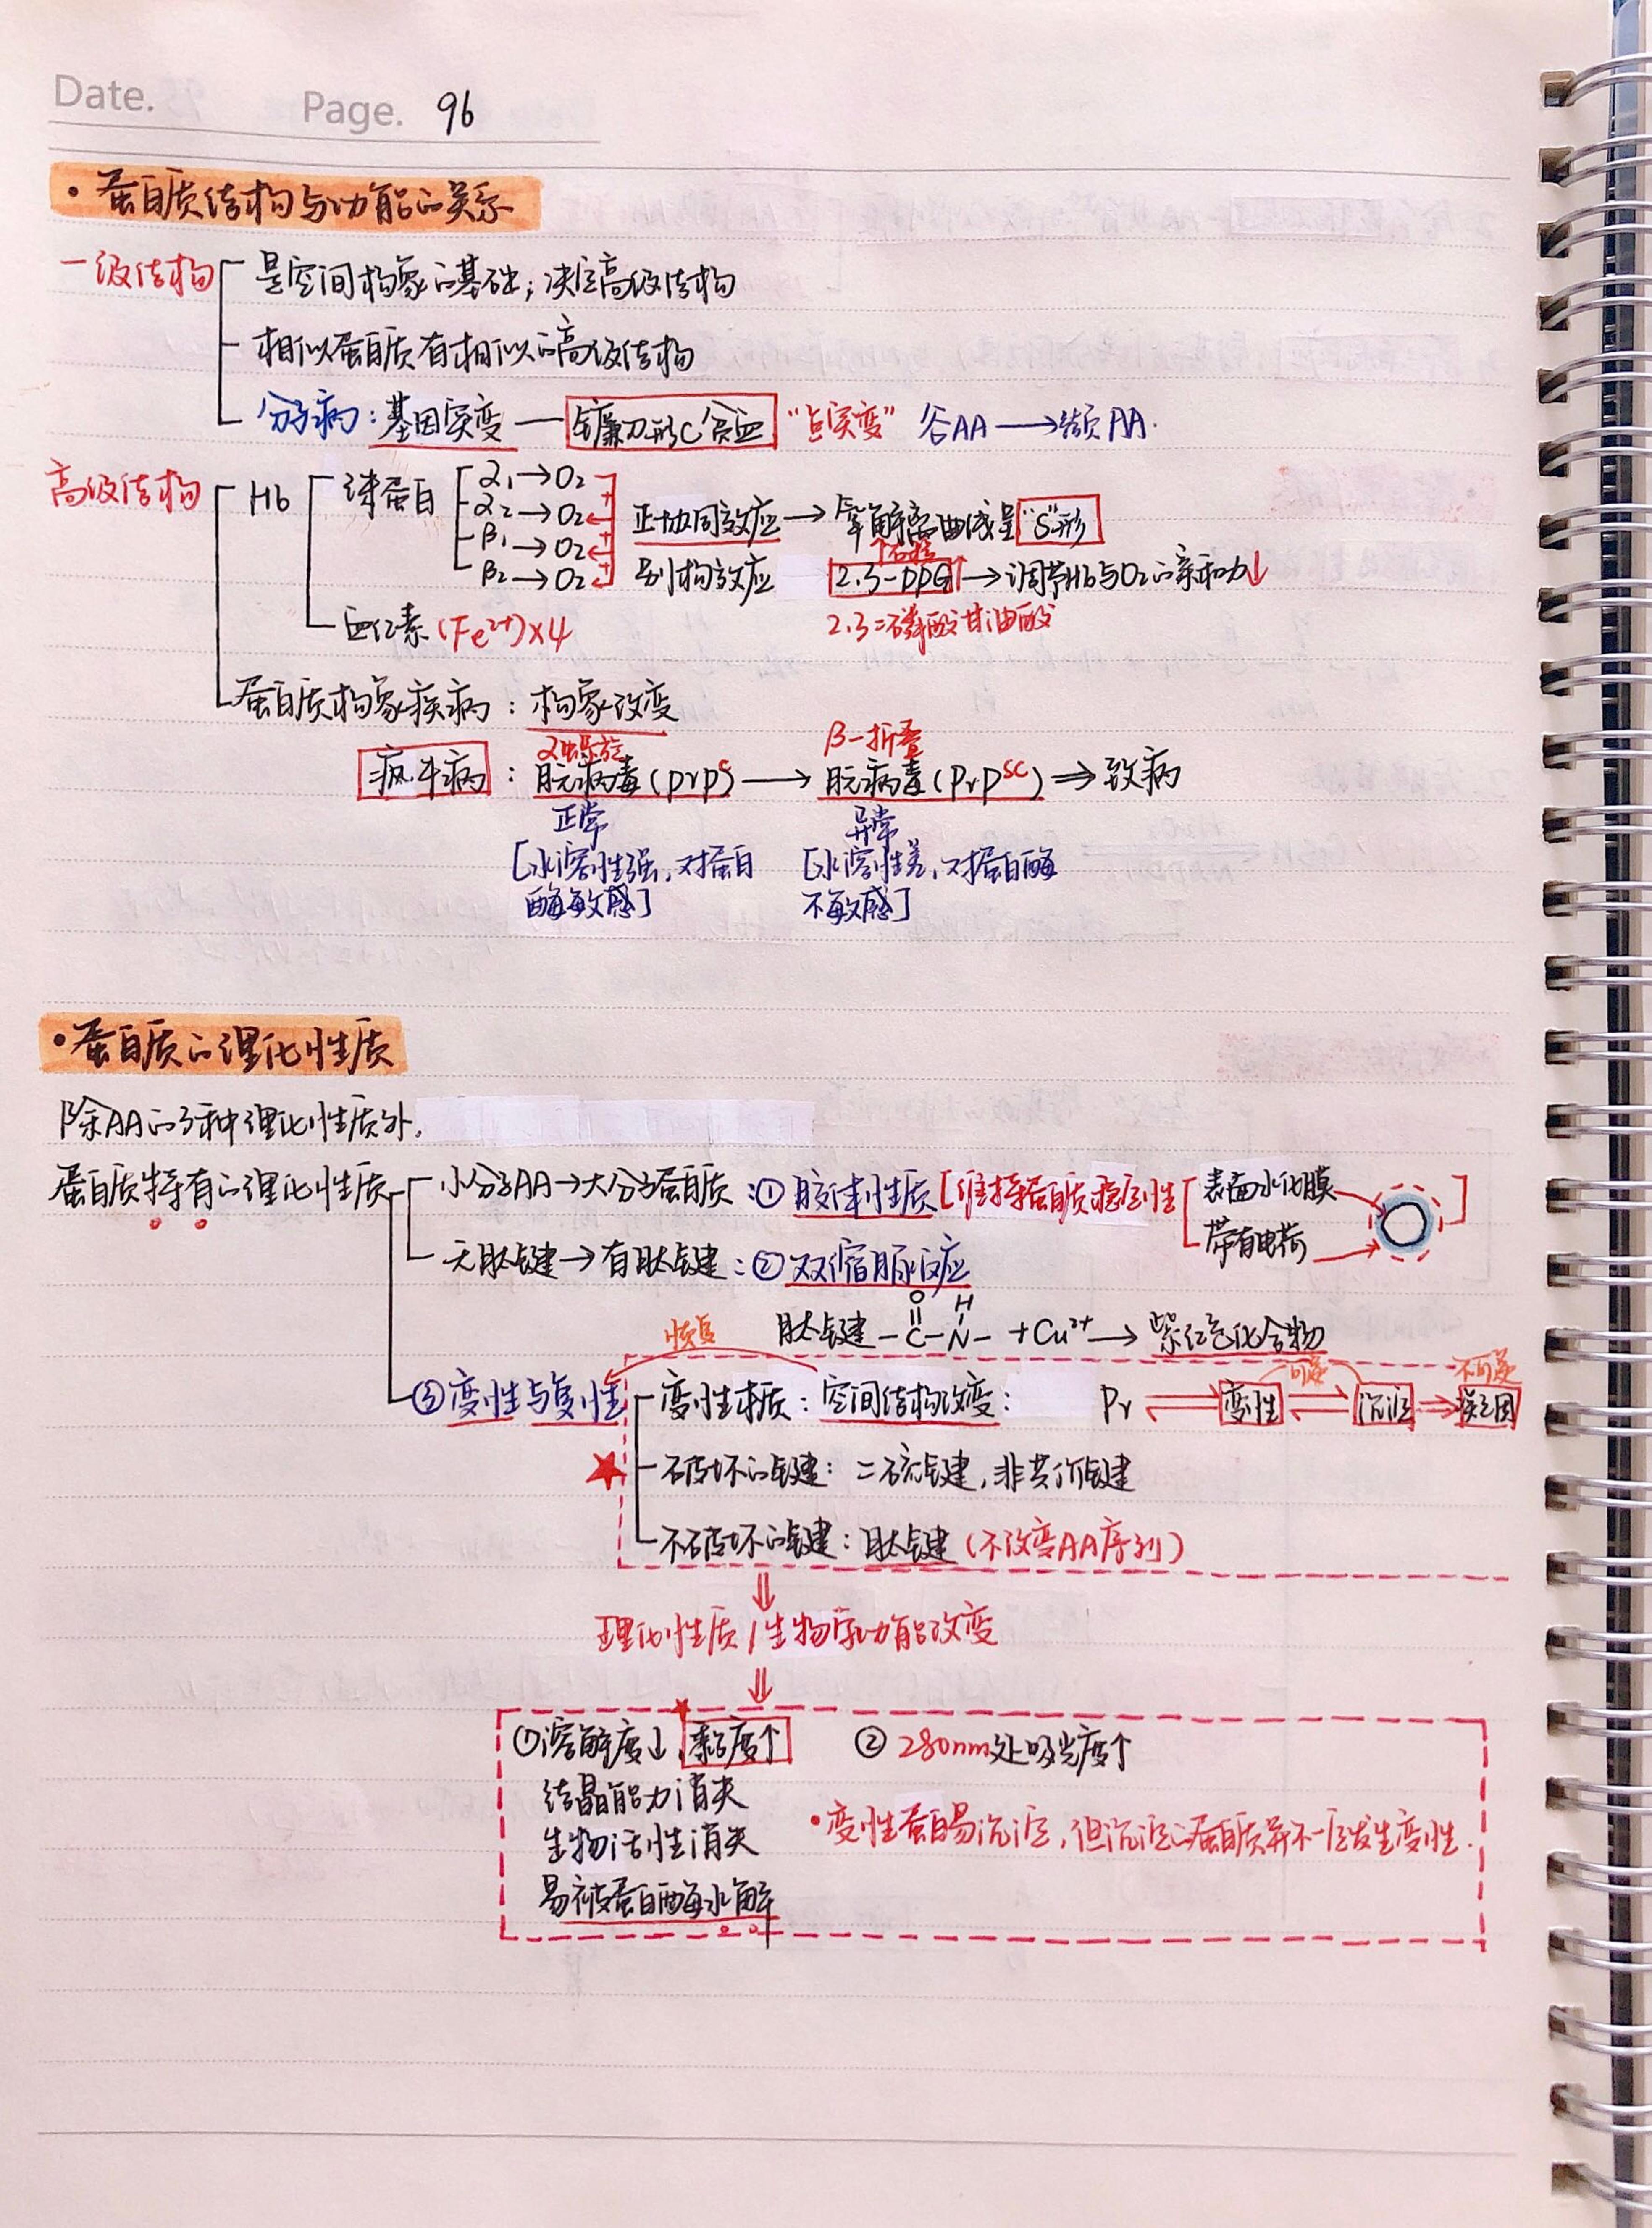 Date.
Page. 96
• 蛋白质结构与功能的关系
一级结构
是空间构象的基础；决定高级结构
相似蛋白质有相似的高级结构
分子病：基因突变 — 镰刀形C贫血 "点突变" 谷AA → 缬AA.
高级结构
Hb
珠蛋白
α₁→O₂
α₂→O₂
β₁→O₂
β₂→O₂
+
+
+
正协同效应 → 氧解离曲线呈"S"形
别构效应 2.3-DPG↑ → 调节Hb与O₂的亲和力↓
2.3二磷酸甘油酸
血红素 (Fe²⁺)×4
蛋白质构象疾病：构象改变
α螺旋
β-折叠
疯牛病：朊病毒(PrPᶜ) → 朊病毒(PrPˢᶜ) ⇒ 致病
正常
异常
[水溶性强，对蛋白
酶敏感]
[水溶性差，对蛋白酶
不敏感]
• 蛋白质的理化性质
除AA的3种理化性质外，
蛋白质特有的理化性质
小分子AA→大分子蛋白质：① 胶体性质 [维持蛋白质稳定性
表面水化膜
带有电荷
]
无肽键→有肽键：② 双缩脲反应
肽键 -C(=O)-N(H)- + Cu²⁺ → 紫红色化合物
恢复
③ 变性与复性
变性本质：空间结构改变：
Pr ⇌ 变性 ⇌ 沉淀 → 凝固
可逆
不可逆
★
破坏的键：二硫键，非共价键
不破坏的键：肽键 (不改变AA序列)
⇓
理化性质/生物学功能改变
⇓
① 溶解度↓、黏度↑
② 280nm处吸光度↑
结晶能力消失
生物活性消失
• 变性蛋白易沉淀，但沉淀的蛋白质并不一定发生变性.
易被蛋白酶水解